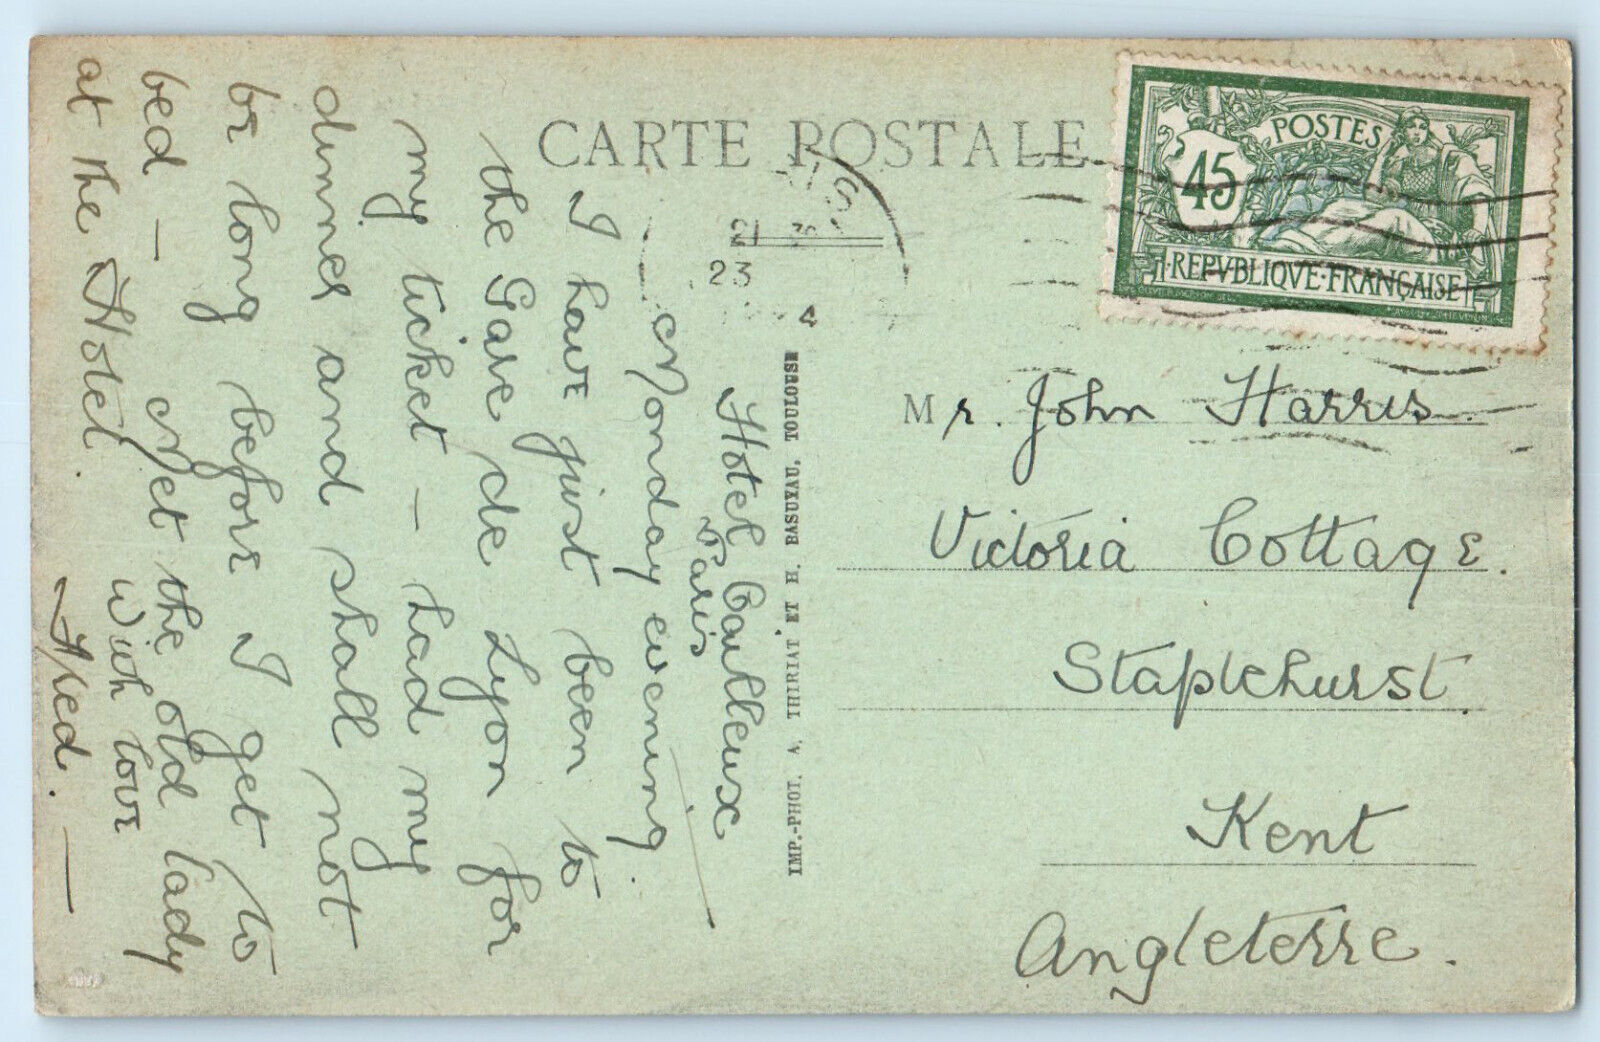 CARTE POSTALE
Hotel Cailleux
Paris
Monday evening.
I have just been to
the Gare de Lyon for
my ticket - had my
dinner and shall not
be long before I get to
bed - Met the old lady
at the Hotel.
With love
IMP.-PHOT. A. THIRIAT ET H. BASUYAU, TOULOUSE
21 30
23
4
45
POSTES
REPVBLIQVE·FRANÇAISE
Mr. John Harris.
Victoria Cottage.
Staplehurst.
Kent
Angleterre.